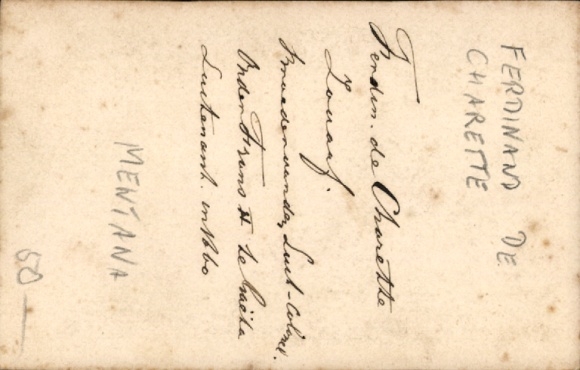 FERDINAND DE
CHARETTE
Ferdin. de Charette
Zouaaf.
Broeder van den Luit-Colonel.
Onder Frans II te Gaëta
Luitenant in 1860
MENTANA
50